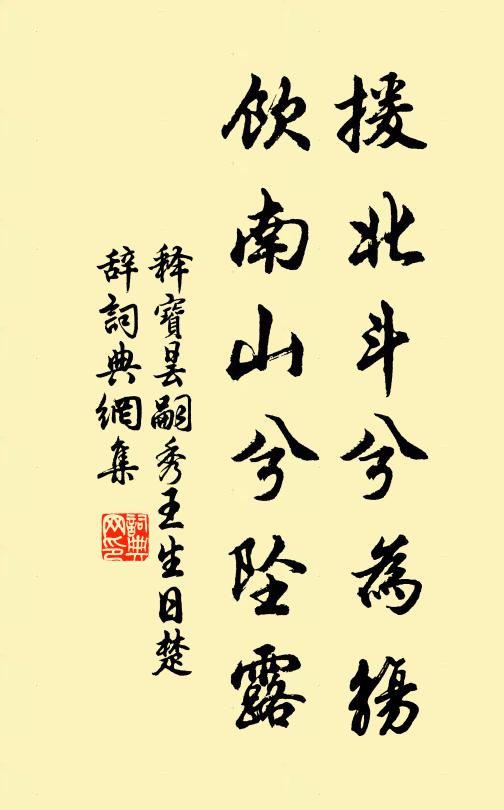 援北斗兮為觴
飲南山兮坠露
释寶昙嗣秀王生日楚
辞詞典網集
詞典
网印